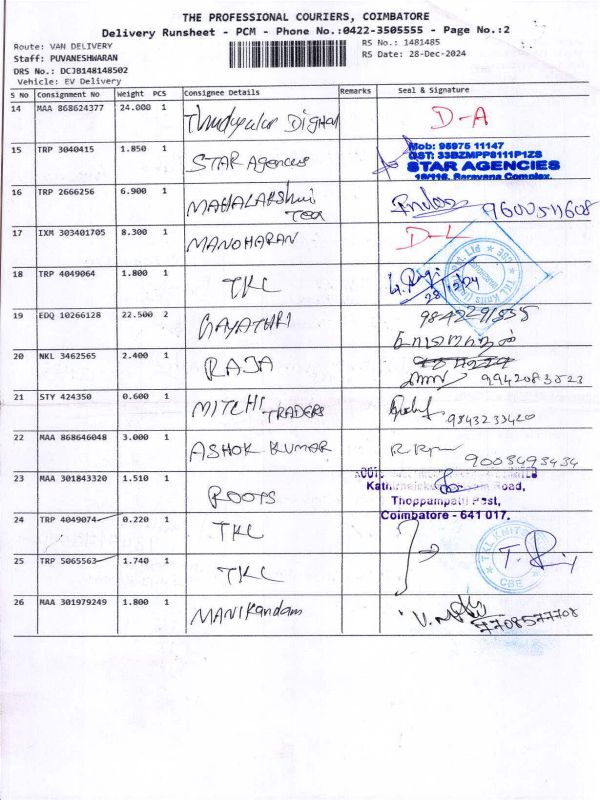 THE PROFESSIONAL COURIERS, COIMBATORE
Delivery Runsheet - PCM - Phone No.:0422-3505555 - Page No.:2
Route: VAN DELIVERY RS No.: 1481485
Staff: PUVANESHWARAN RS Date: 28-Dec-2024
DRS No.: DCJB148148502
Vehicle: EV Delivery
S No Consignment No Weight PCS Consignee Details Remarks Seal & Signature
14 MAA 868624377 24.000 1 Digital D-A
Mob: 95975 11147
GST: 33BZMPP8111P1ZS
15 TRP 3040415 1.850 1 STAR Agencies STAR AGENCIES
Complex.
16 TRP 2666256 6.900 1 MAHALAKShmi
Tex 9600511608
17 IXM 303401705 8.300 1 MANOHARAN D-L
18 TRP 4049064 1.800 1 TKL
28/12/24
19 EDQ 10266128 22.500 2 GAYATHRI 9842291835
20 NKL 3462565 2.400 1 RAJA
9942083523
21 STY 424350 0.600 1 MITCHI TRADERS 9843233420
22 MAA 868646048 3.000 1 ASHOK KUMAR
9003493434
23 MAA 301843320 1.510 1 ROOTS Road,
Thoppampatti Post,
Coimbatore - 641 017.
24 TRP 4049074 0.220 1 TKL
25 TRP 5065563 1.740 1 TKL
CBE
26 MAA 301979249 1.800 1 MANIKandam
7708577708